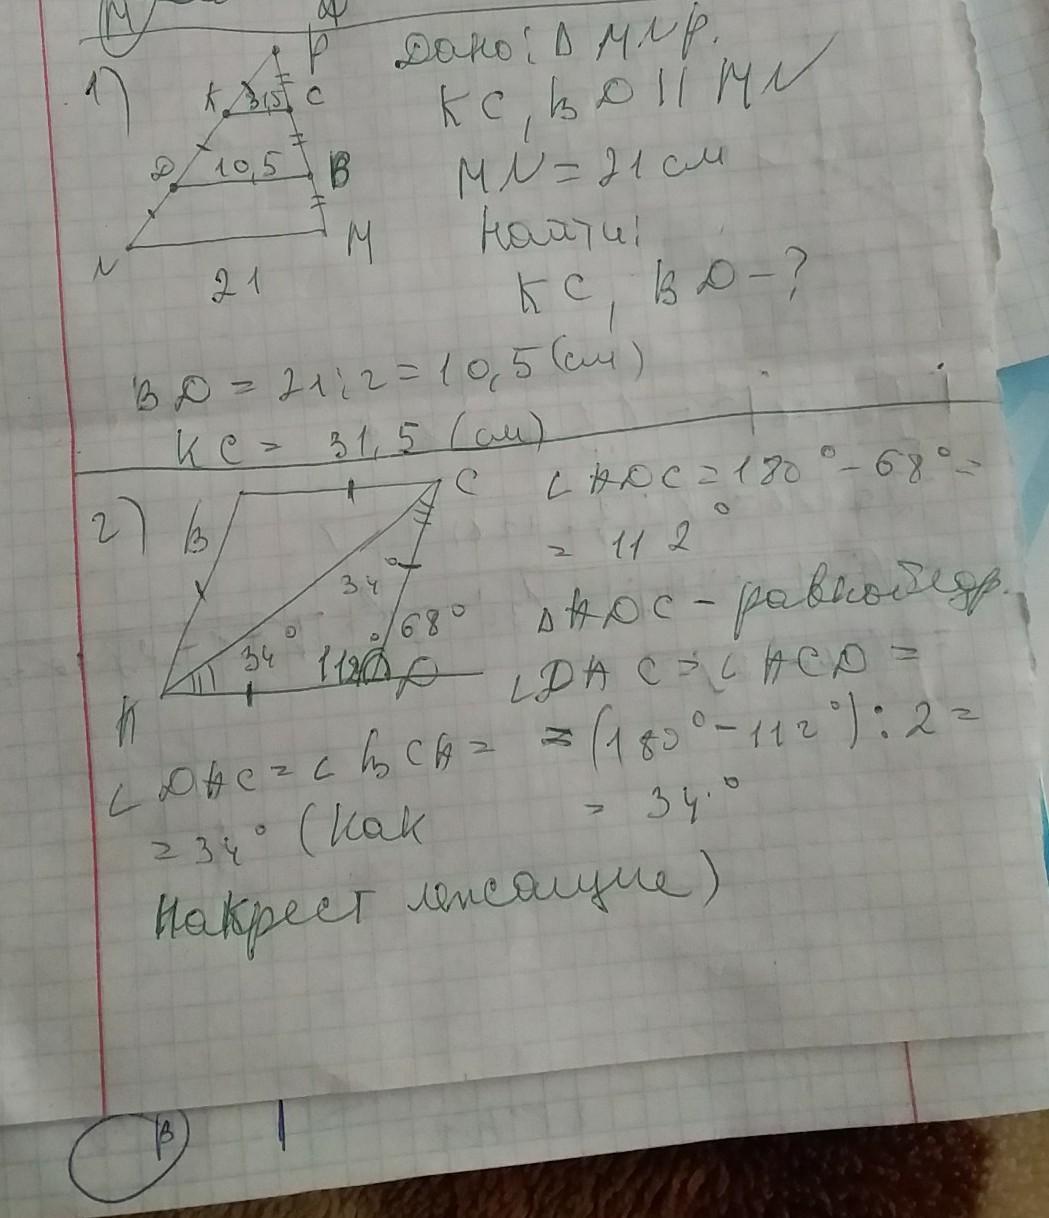 1)
P
K 3,5 C
D 10,5 B
N M
21
Дано: Δ MNP.
KC, BD || MN
MN = 21 см
Найти:
KC, BD - ?
BD = 21 : 2 = 10,5 (см)
KC = 31,5 (см)
2)
B C
34°
34° 112° 68°
A D
∠ADC = 180° - 68° =
= 112°
ΔADC - равнобедр.
∠DAC = ∠ACD =
= (180° - 112°) : 2 =
= 34°
∠DAC = ∠BCA =
= 34° (Как
накрест лежащие)
β